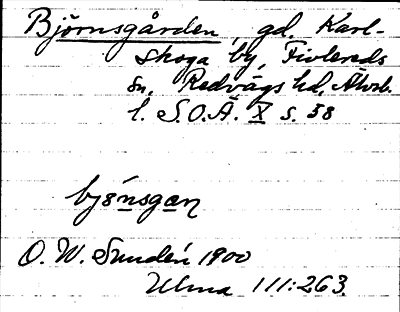 Björnsgården, gd. Karl-
skoga by, Fivlereds
sn, Redvägs hd, Älvsb.
l. S.O.Ä. X s. 38
bjö́nsgan
O. W. Sundén 1900
Ulma 111:263.